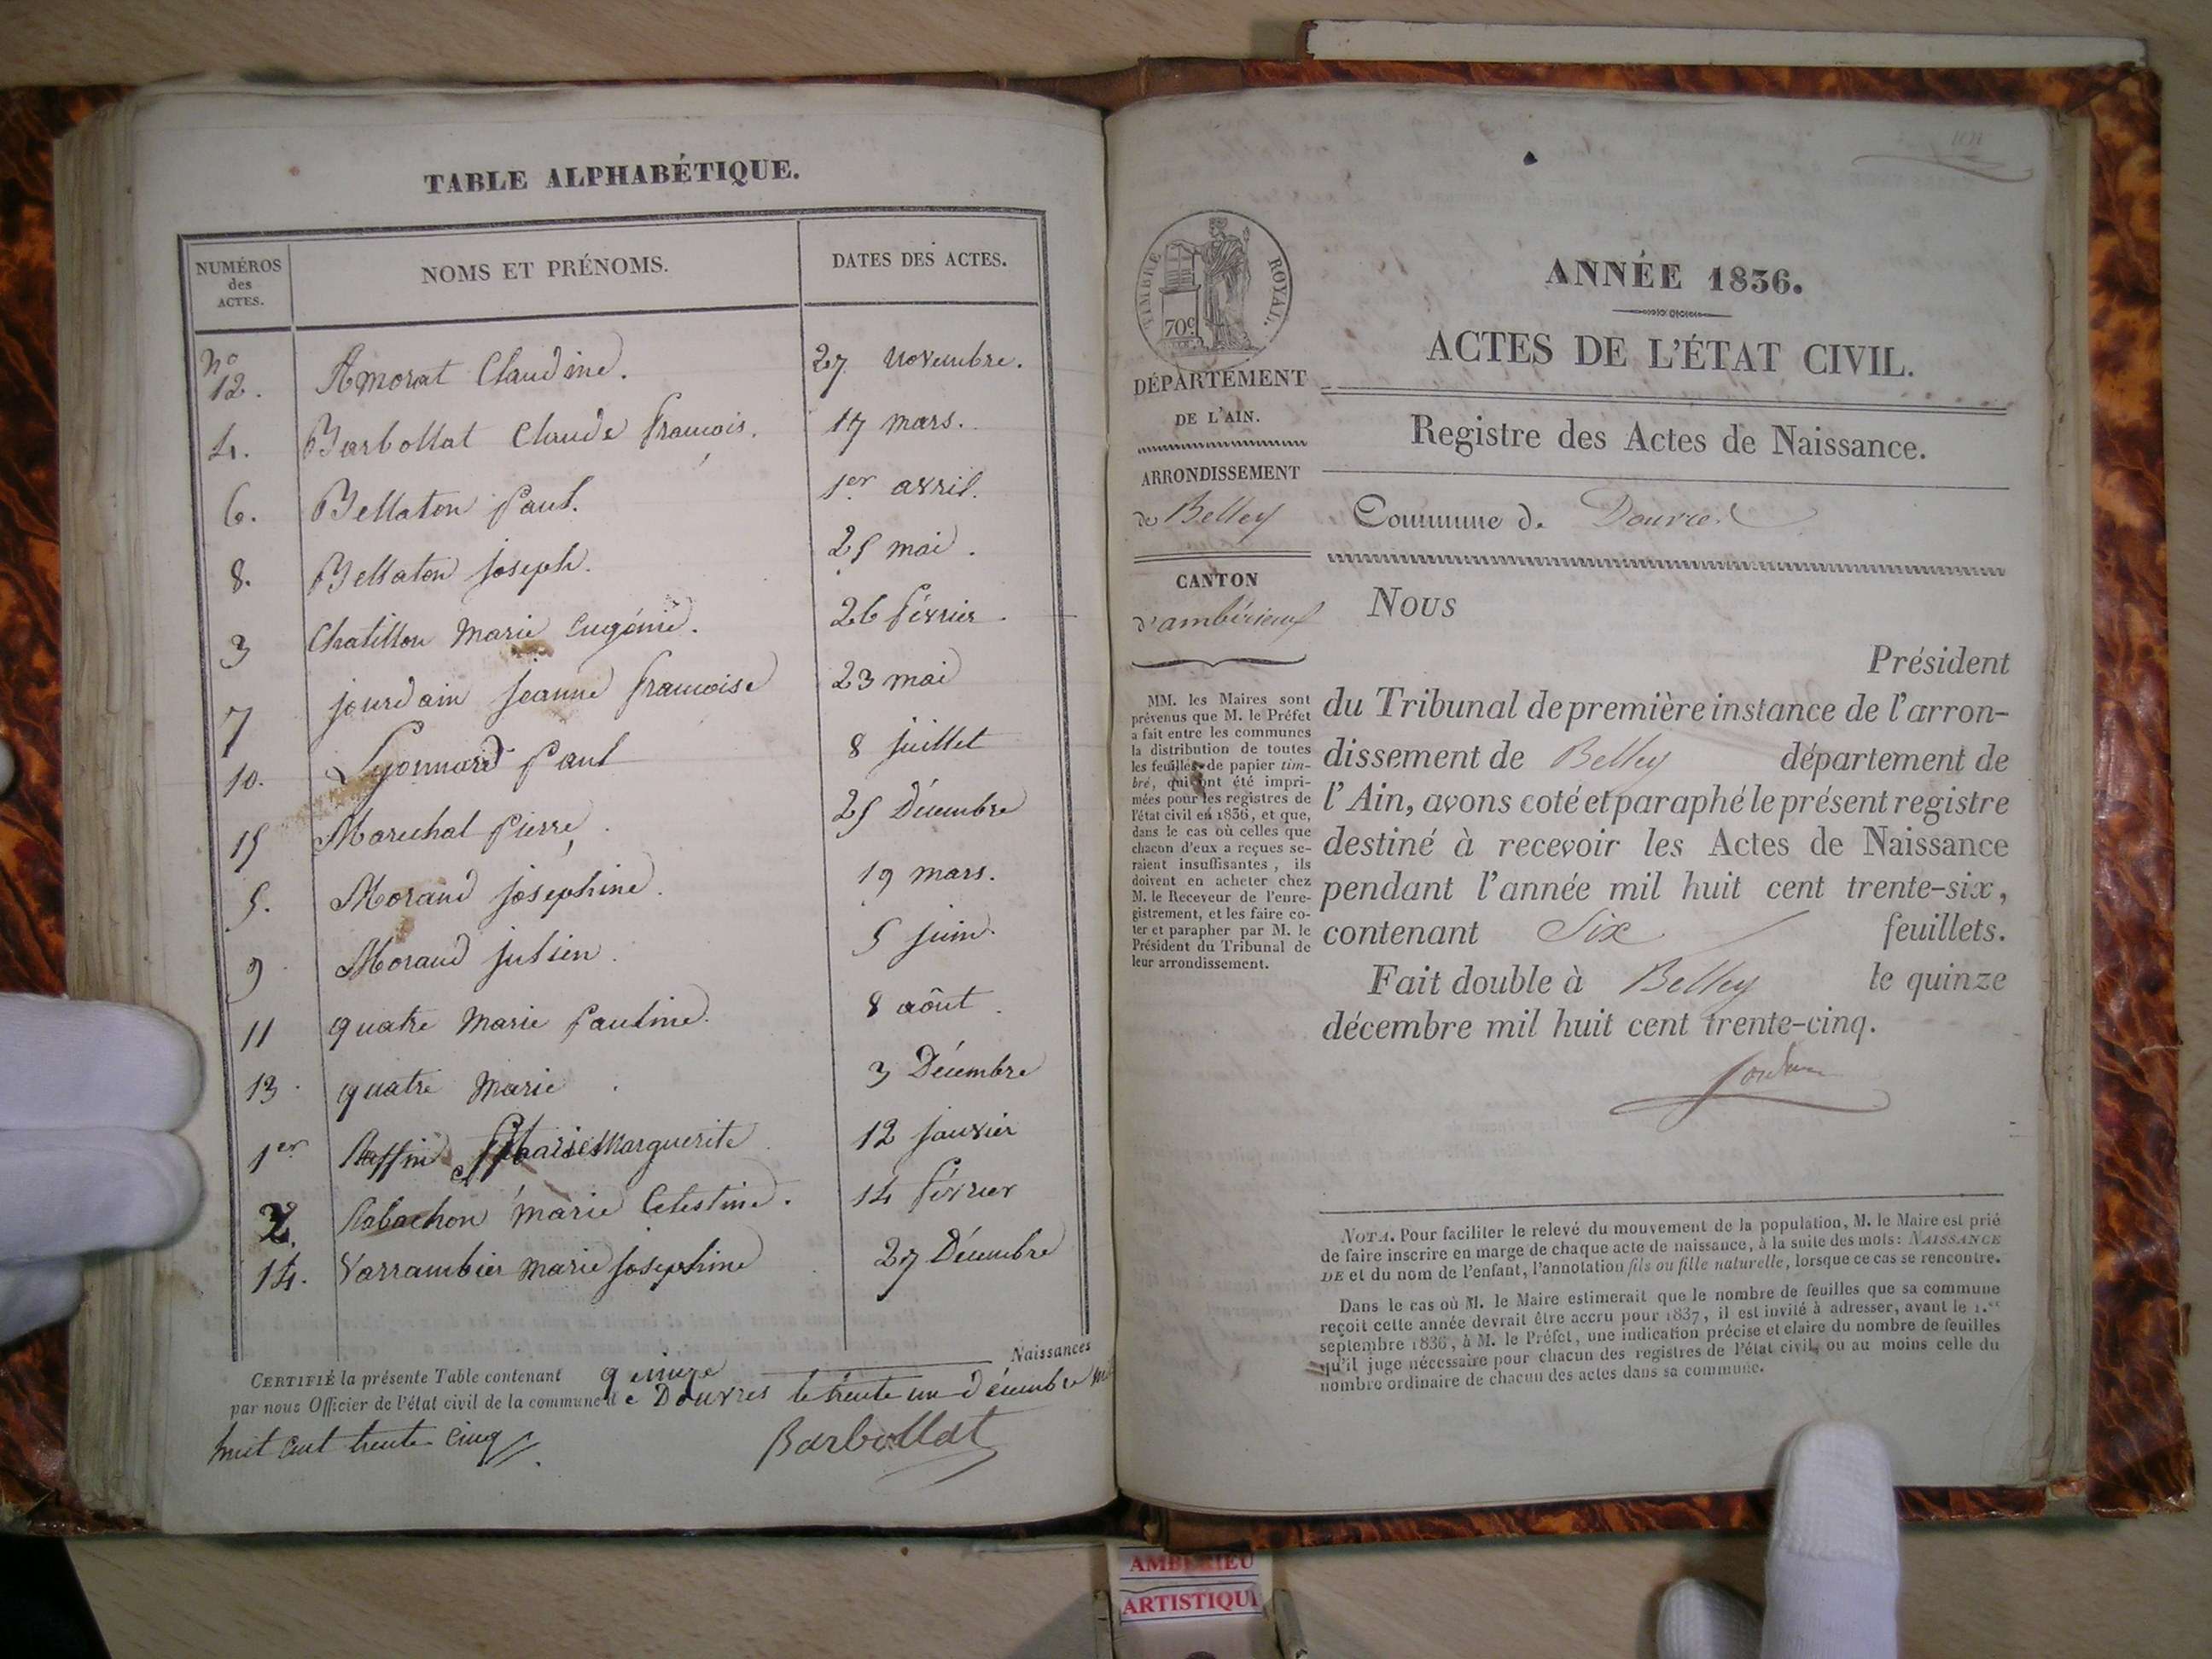 TABLE ALPHABÉTIQUE.
NUMÉROS des ACTES. NOMS ET PRÉNOMS. DATES DES ACTES.
no 12. Amorat Claudine. 27 novembre.
4. Barbollat Claude françois. 17 mars.
6. Bellaton Paul. 1er avril.
8. Bellaton joseph. 25 mai.
3 Chatillon Marie Eugénie. 26 février.
7 jourdain jeanne françoise 23 mai
10. Lyonnard Paul 8 juillet
15 Marechal Pierre. 25 Décembre
5. Morand joséphine. 19 mars.
9 Morand julien. 5 juin.
11 quatre Marie Pauline. 8 aôut.
13. quatre Marie. 3 Décembre
1er Marguerite 12 janvier
2. marie Celestine. 14 février
14. Varrambier marie josephine 27 Décembre
CERTIFIÉ la présente Table contenant quinze Naissances
par nous Officier de l'état civil de la commune de Douvres le trente un décembre mil
huit cent trente-cinq.
Barbollat
TIMBRE ROYAL.
70c
ANNÉE 1836.
ACTES DE L'ÉTAT CIVIL.
Registre des Actes de Naissance.
Commune de Douvres
DÉPARTEMENT
DE L'AIN.
ARRONDISSEMENT
de Belley
CANTON
d'ambérieux
MM. les Maires sont
prévenus que M. le Préfet
a fait entre les communes
la distribution de toutes
les feuilles de papier tim-
bré, qui ont été impri-
mées pour les registres de
l'état civil en 1836, et que,
dans le cas où celles que
chacun d'eux a reçues se-
raient insuffisantes, ils
doivent en acheter chez
M. le Receveur de l'enre-
gistrement, et les faire co-
ter et parapher par M. le
Président du Tribunal de
leur arrondissement.
Nous
Président
du Tribunal de première instance de l'arron-
dissement de Belley département de
l'Ain, avons coté et paraphé le présent registre
destiné à recevoir les Actes de Naissance
pendant l'année mil huit cent trente-six,
contenant Six feuillets.
Fait double à Belley le quinze
décembre mil huit cent trente-cinq.
NOTA. Pour faciliter le relevé du mouvement de la population, M. le Maire est prié
de faire inscrire en marge de chaque acte de naissance, à la suite des mots: NAISSANCE
DE et du nom de l'enfant, l'annotation fils ou fille naturelle, lorsque ce cas se rencontre.
Dans le cas où M. le Maire estimerait que le nombre de feuilles que sa commune
reçoit cette année devrait être accru pour 1837, il est invité à adresser, avant le 1.er
septembre 1836, à M. le Préfet, une indication précise et claire du nombre de feuilles
qu'il juge nécessaire pour chacun des registres de l'état civil, ou au moins celle du
nombre ordinaire de chacun des actes dans sa commune.
AMBERIEU
ARTISTIQU